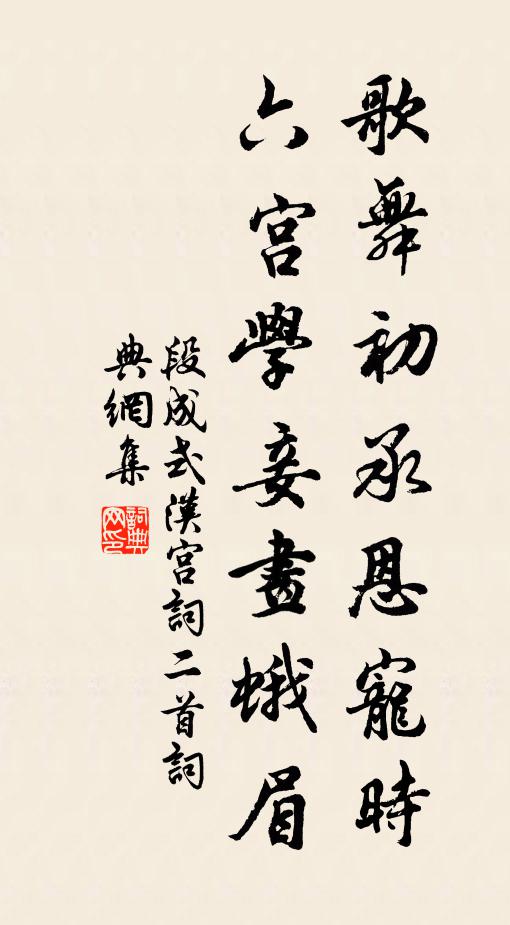 歌舞初承恩寵時
六宮學妾畫蛾眉
段成式漢宮詞二首詞
典網集
詞典网印